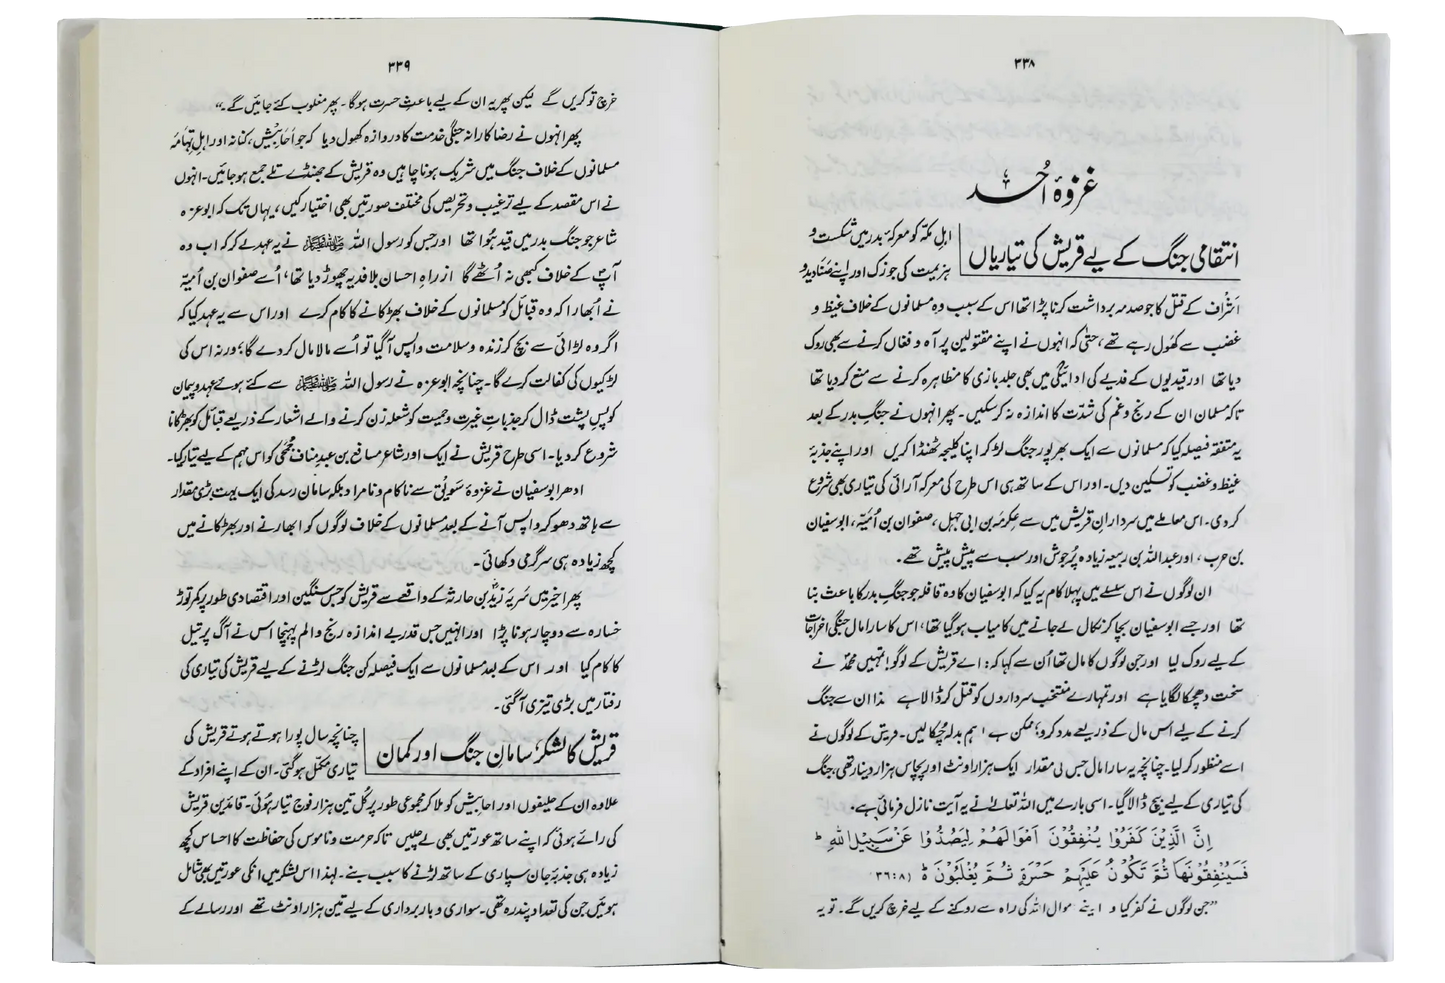 ۳۳۸
غزوۂ اُحد
انتقامی جنگ کے لیے قریش کی تیاریاں
اہلِ مکّہ کو معرکۂ بدر میں شکست و
ہزیمت کی جو زک اور اپنے صَنَادید و
اَشراف کے قتل کا جو صدمہ برداشت کرنا پڑا تھا اس کے سبب وہ مسلمانوں کے خلاف غیظ و
غضب سے کھول رہے تھے، حتیٰ کہ انہوں نے اپنے مقتولین پر آہ و فغاں کرنے سے بھی روک
دیا تھا اور قیدیوں کے فدیے کی ادائیگی میں بھی جلد بازی کا مظاہرہ کرنے سے منع کر دیا تھا
تاکہ مسلمان ان کے رنج و غم کی شدّت کا اندازہ نہ کر سکیں۔ پھر انہوں نے جنگِ بدر کے بعد
یہ متفقہ فیصلہ کیا کہ مسلمانوں سے ایک بھرپور جنگ لڑ کر اپنا کلیجہ ٹھنڈا کریں اور اپنے جذبۂ
غیظ و غضب کو تسکین دیں۔ اور اس کے ساتھ ہی اس طرح کی معرکہ آرائی کی تیاری بھی شروع
کر دی۔ اس معاملے میں سردارانِ قریش میں سے عکرمہ بن ابی جہل، صفوان بن اُمیّہ، ابوسفیان
بن حرب، اور عبداللہ بن ربیعہ زیادہ پُرجوش اور سب سے پیش پیش تھے۔
ان لوگوں نے اس سلسلے میں پہلا کام یہ کیا کہ ابوسفیان کا وہ قافلہ جو جنگِ بدر کا باعث بنا
تھا اور جسے ابوسفیان بچا کر نکال لے جانے میں کامیاب ہو گیا تھا، اس کا سارا مال جنگی اخراجات
کے لیے روک لیا اور جن لوگوں کا مال تھا اُن سے کہا کہ: اے قریش کے لوگو! تمہیں محمّد نے
سخت دھچکا لگایا ہے اور تمہارے منتخب سرداروں کو قتل کر ڈالا ہے ۔ لہذا ان سے جنگ
کرنے کے لیے اس مال کے ذریعے مدد کرو؛ ممکن ہے ہم بدلہ چکا لیں۔ قریش کے لوگوں نے
اسے منظور کر لیا۔ چنانچہ یہ سارا مال جس کی مقدار ایک ہزار اونٹ اور پچاس ہزار دینار تھی، جنگ
کی تیاری کے لیے بیچ ڈالا گیا۔ اسی بارے میں اللہ تعالےٰ نے یہ آیت نازل فرمائی ہے۔
اِنَّ الَّذِیْنَ کَفَرُوْا یُنْفِقُوْنَ اَمْوَالَهُمْ لِیَصُدُّوْا عَنْ سَبِیْلِ اللّٰهِ ؕ
فَسَیُنْفِقُوْنَهَا ثُمَّ تَکُوْنُ عَلَیْهِمْ حَسْرَةً ثُمَّ یُغْلَبُوْنَ ؕ (۳۶:۸)
”جن لوگوں نے کفر کیا وہ اپنے اموال اللہ کی راہ سے روکنے کے لیے خرچ کریں گے۔ تو یہ
۳۳۹
خرچ تو کریں گے لیکن پھر یہ ان کے لیے باعثِ حسرت ہوگا۔ پھر مغلوب کئے جائیں گے۔“
پھر انہوں نے رضاکارانہ جنگی خدمت کا دروازہ کھول دیا کہ جو اَحَابِیش، کنانہ اور اہلِ تِہَامَہ
مسلمانوں کے خلاف جنگ میں شریک ہونا چاہیں وہ قریش کے جھنڈے تلے جمع ہو جائیں۔ انہوں
نے اس مقصد کے لیے ترغیب و تحریص کی مختلف صورتیں بھی اختیار کیں، یہاں تک کہ ابو عزہ
شاعر جو جنگِ بدر میں قید ہُوا تھا اور جس کو رسول اللہ ﷺ نے یہ عہد لے کر کہ اب وہ
آپؐ کے خلاف کبھی نہ اُٹھے گا ازراہِ احسان بلا فدیہ چھوڑ دیا تھا، اُسے صفوان بن اُمیّہ
نے اُبھارا کہ وہ قبائل کو مسلمانوں کے خلاف بھڑکانے کا کام کرے اور اس سے یہ عہد کیا کہ
اگر وہ لڑائی سے بچ کر زندہ و سلامت واپس آ گیا تو اُسے مالا مال کر دے گا؛ ورنہ اس کی
لڑکیوں کی کفالت کرے گا۔ چنانچہ ابو عزہ نے رسول اللہ ﷺ سے کئے ہوئے عہد و پیمان
کو پسِ پشت ڈال کر جذباتِ غیرت و حمیت کو شعلہ زن کرنے والے اشعار کے ذریعے قبائل کو بھڑکانا
شروع کر دیا۔ اسی طرح قریش نے ایک اور شاعر مسافع بن عبد مناف جُمَحِی کو اس مہم کے لیے تیار کیا۔
ادھر ابوسفیان نے غزوۂ سَویق سے ناکام و نامراد بلکہ سامانِ رسد کی ایک بہت بڑی مقدار
سے ہاتھ دھو کر واپس آنے کے بعد مسلمانوں کے خلاف لوگوں کو ابھارنے اور بھڑکانے میں
کچھ زیادہ ہی سرگرمی دکھائی۔
پھر اخیر میں سَریّۂ زیدؓ بن حارثہ کے واقعے سے قریش کو جس سنگین اور اقتصادی طور پر کمر توڑ
خسارہ سے دوچار ہونا پڑا اور انہیں جس قدر بے اندازہ رنج و الم پہنچا اس نے آگ پر تیل
کا کام کیا اور اس کے بعد مسلمانوں سے ایک فیصلہ کن جنگ لڑنے کے لیے قریش کی تیاری کی
رفتار میں بڑی تیزی آ گئی۔
قریش کا لشکر، سامانِ جنگ اور کمان
چنانچہ سال پورا ہوتے ہوتے قریش کی
تیاری مکمل ہو گئی۔ ان کے اپنے افراد کے
علاوہ ان کے حلیفوں اور احابیش کو ملا کر مجموعی طور پر کُل تین ہزار فوج تیار ہُوئی۔ قائدین قریش
کی رائے ہوئی کہ اپنے ساتھ عورتیں بھی لے چلیں تاکہ حرمت و ناموس کی حفاظت کا احساس کچھ
زیادہ ہی جذبۂ جان سپاری کے ساتھ لڑنے کا سبب بنے۔ لہذا اس لشکر میں انکی عورتیں بھی شامل
ہوئیں جن کی تعداد پندرہ تھی۔ سواری و باربرداری کے لیے تین ہزار اونٹ تھے اور رسالے کے